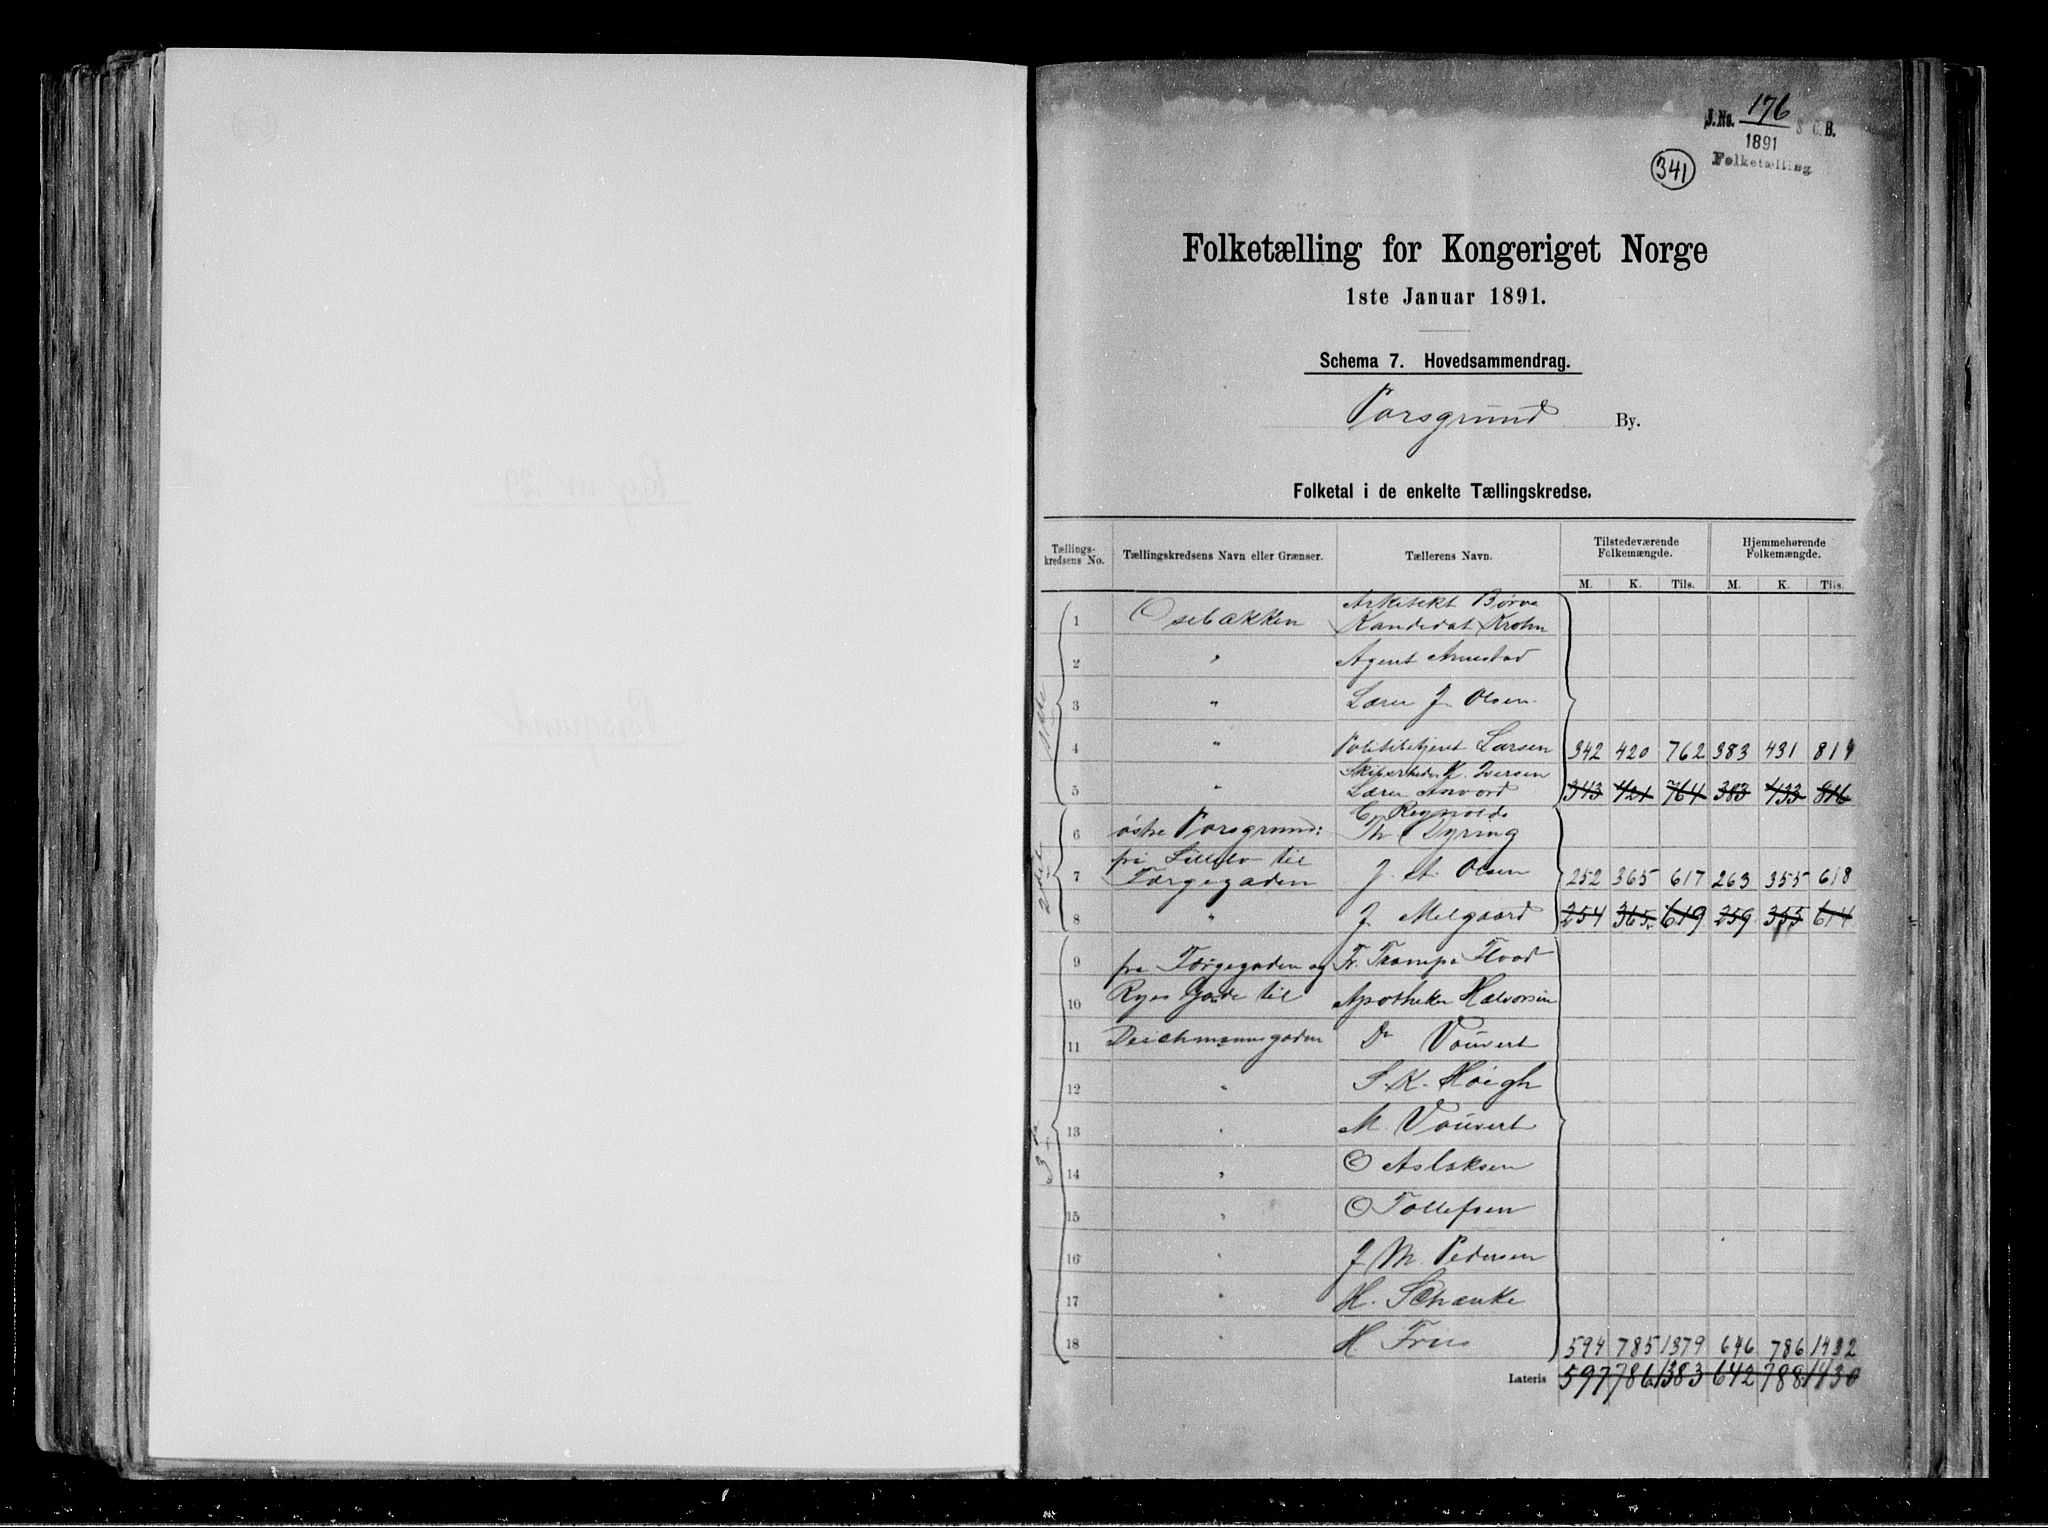 J.No. 176 S C. B.
1891
Folketælling
341
Folketælling for Kongeriget Norge
1ste Januar 1891.
Schema 7. Hovedsammendrag.
Porsgrund By.
Folketal i de enkelte Tællingskredse.
Tællings-kredsens No. Tællingskredsens Navn eller Grænser. Tællerens Navn. Tilstedeværende Folkemængde. Hjemmehørende Folkemængde.
M. K. Tils. M. K. Tils.
Arkitekt Børve
1 Osebækken Kandidat Krohn
2 " Agent
3 " Lærer J. Olsen
4 " Politibetjent Larsen 342 420 762 383 431 814
K. Iversen
5 " Lærer 343 421 764 383 433 816
C. Reynolds
6 østre Porsgrund: Th Dyring
fra Lilleelv til
7 Færgegaden J. St. Olsen 252 365 617 263 355 618
8 " J Melgaard 254 365 619 259 355 614
9 fra Færgegaden og Fr. Trampe Flood
10 Ryes Gade til Apotheker Halvorsen
11 Deichmannsgaden Dr Vauvert
12 " S. K. Høigh
13 " M. Vauvert
14 " O Aslaksen
15 " O Tollefsen
16 " J M. Pedersen
17 " H. Schanke
18 " H Friis 594 785 1379 646 786 1432
Lateris 597 786 1383 642 788 1430